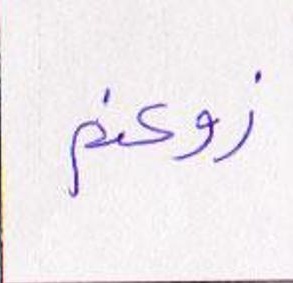 زوعنم